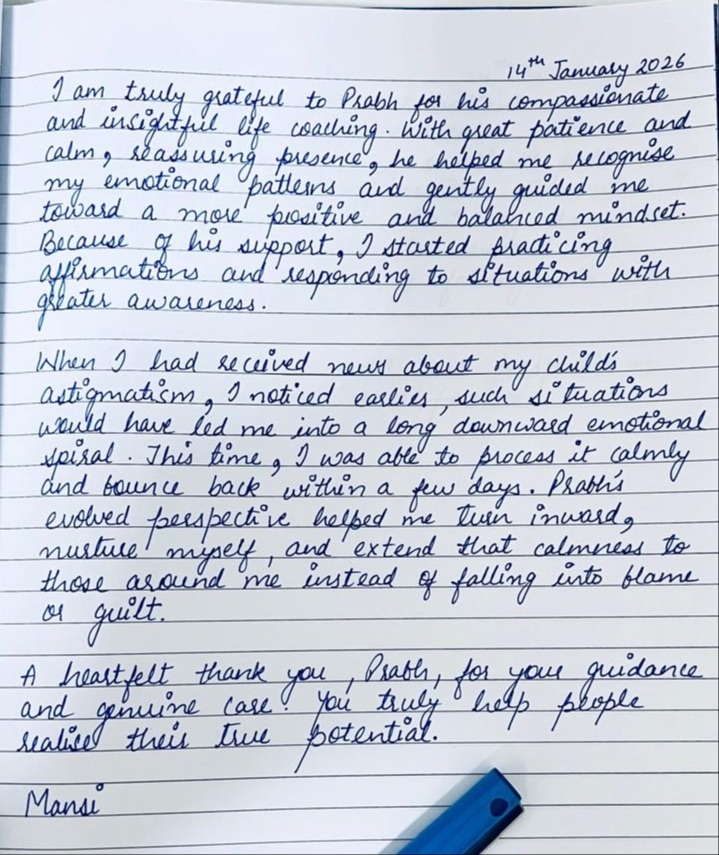 14th January 2026
I am truly grateful to Prabh for his compassionate
and insightful life coaching. With great patience and
calm, reassuring presence, he helped me recognise
my emotional patterns and gently guided me
toward a more positive and balanced mindset.
Because of his support, I started practicing
affirmations and responding to situations with
greater awareness.
When I had received news about my child's
astigmatism, I noticed earlier, such situations
would have led me into a long downward emotional
spiral. This time, I was able to process it calmly
and bounce back within a few days. Prabh's
evolved perspective helped me turn inward,
nurture myself, and extend that calmness to
those around me instead of falling into blame
or guilt.
A heartfelt thank you, Prabh, for your guidance
and genuine care. You truly help people
realise their true potential.
Mansi